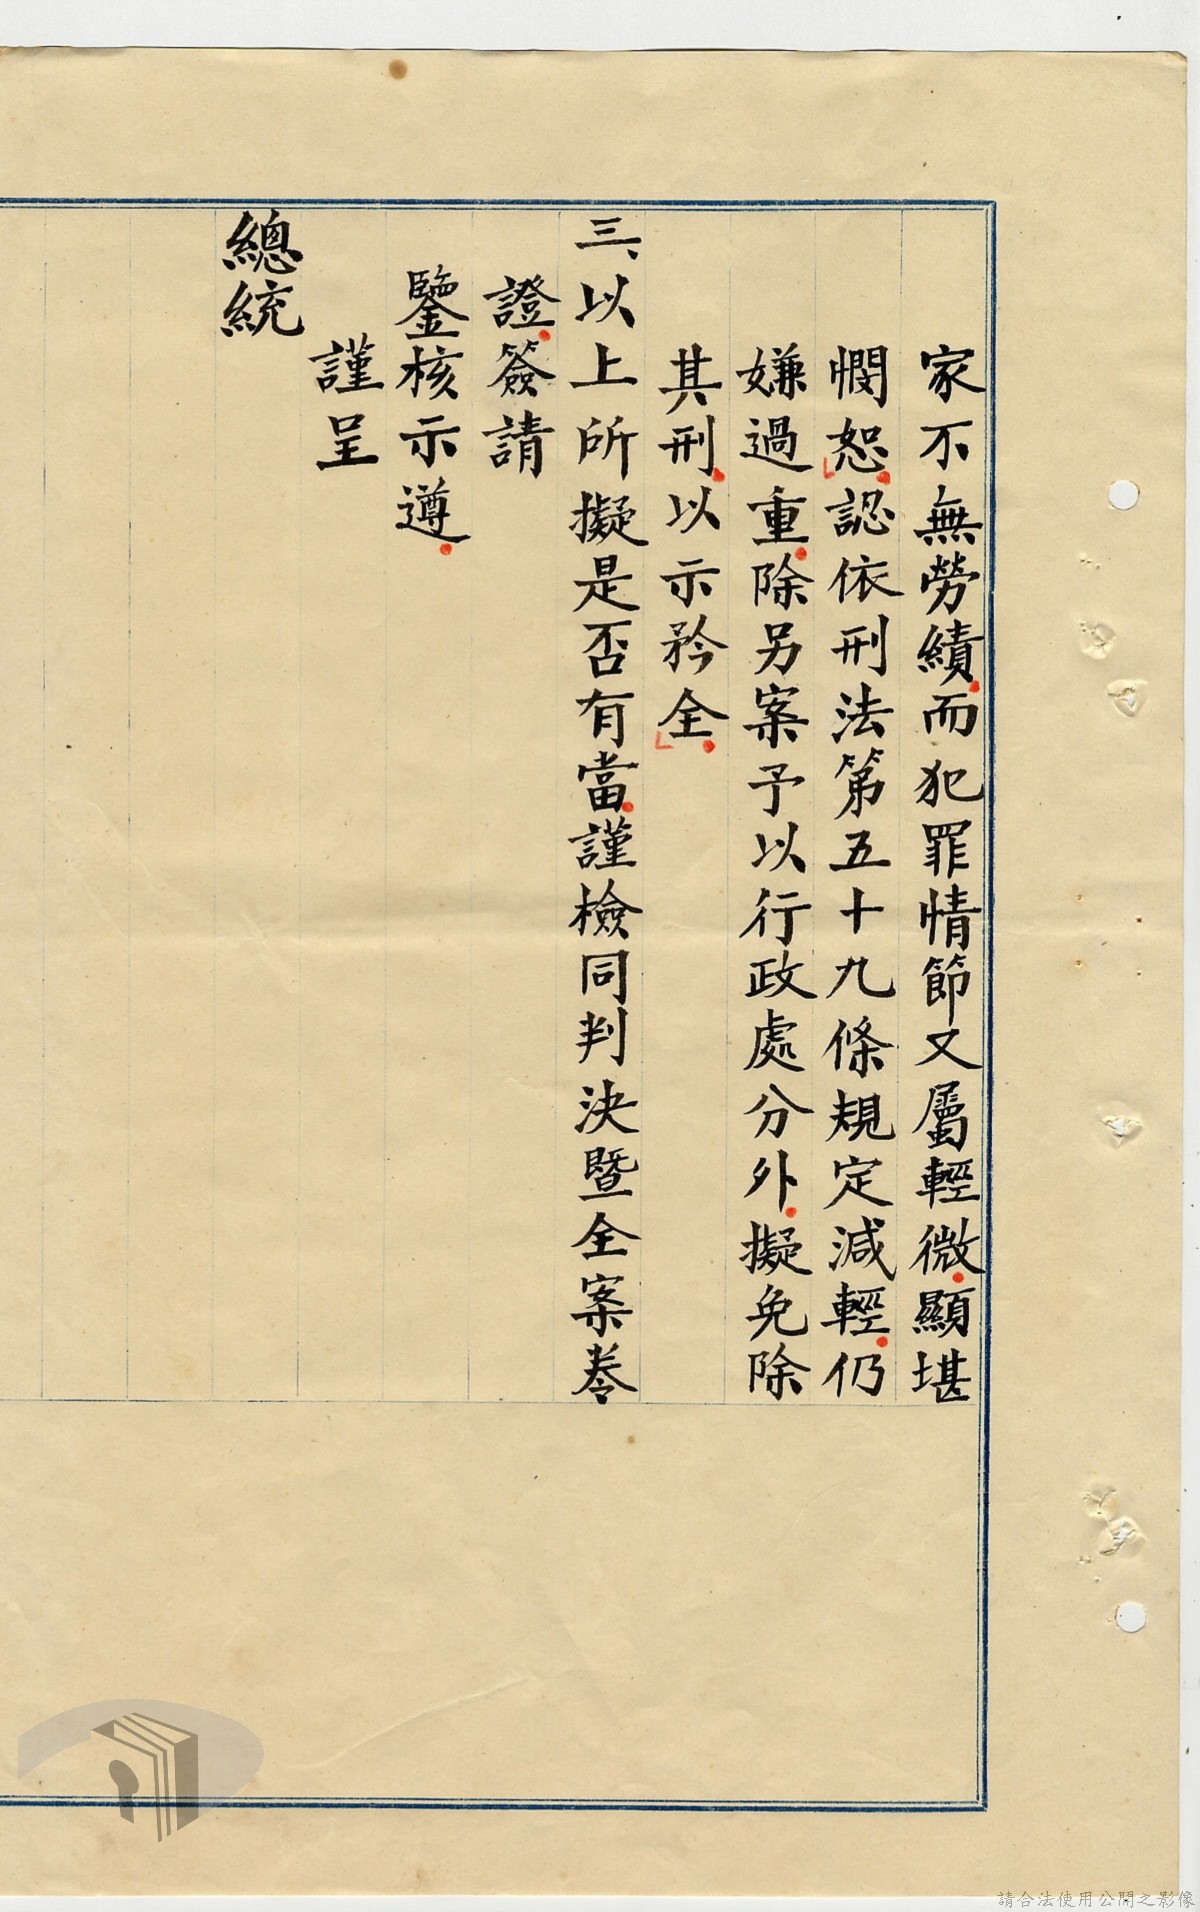 家不無勞績而犯罪情節又屬輕微顯堪
憫恕認依刑法第五十九條規定減輕仍
嫌過重除另案予以行政處分外擬免除
其刑以示矜全
三、以上所擬是否有當謹檢同判決暨全案卷
證簽請
鑒核示遵
謹呈
總統
請合法使用公開之影像